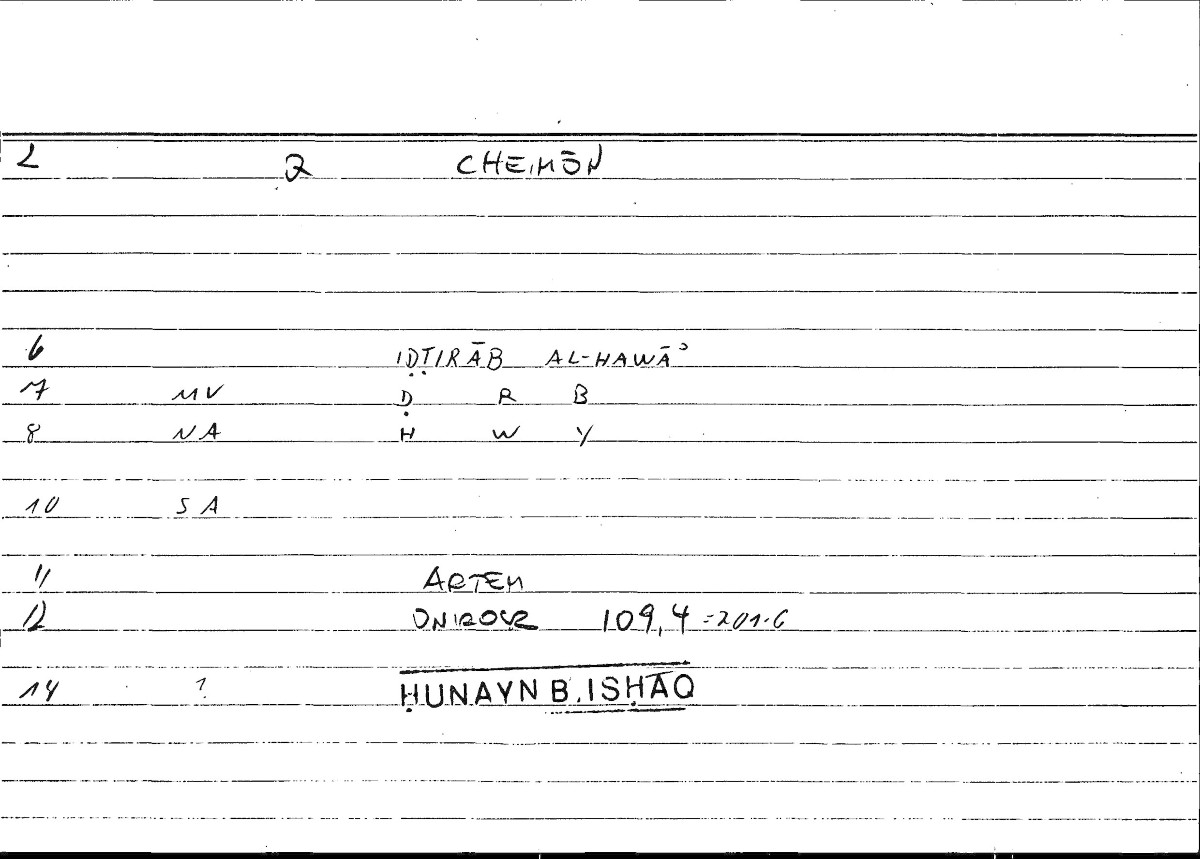 2 2 CHEIMŌN
6 IḌṬIRĀB AL-HAWĀʾ
7 MV Ḍ R B
8 NA H W Y
10 SA
11 ARTEM
12 ONIROCR 109,4 =201.6
14 ? ḤUNAYN B. ISḤĀQ